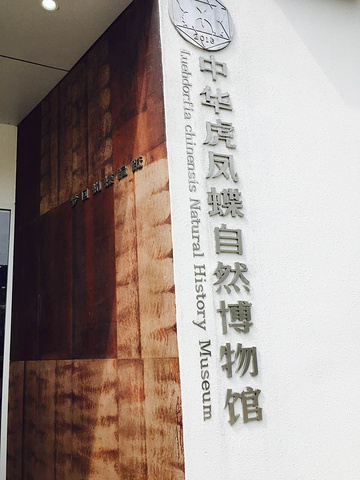 2018
中华虎凤蝶自然博物馆
Luehdorfia chinensis Natural History Museum